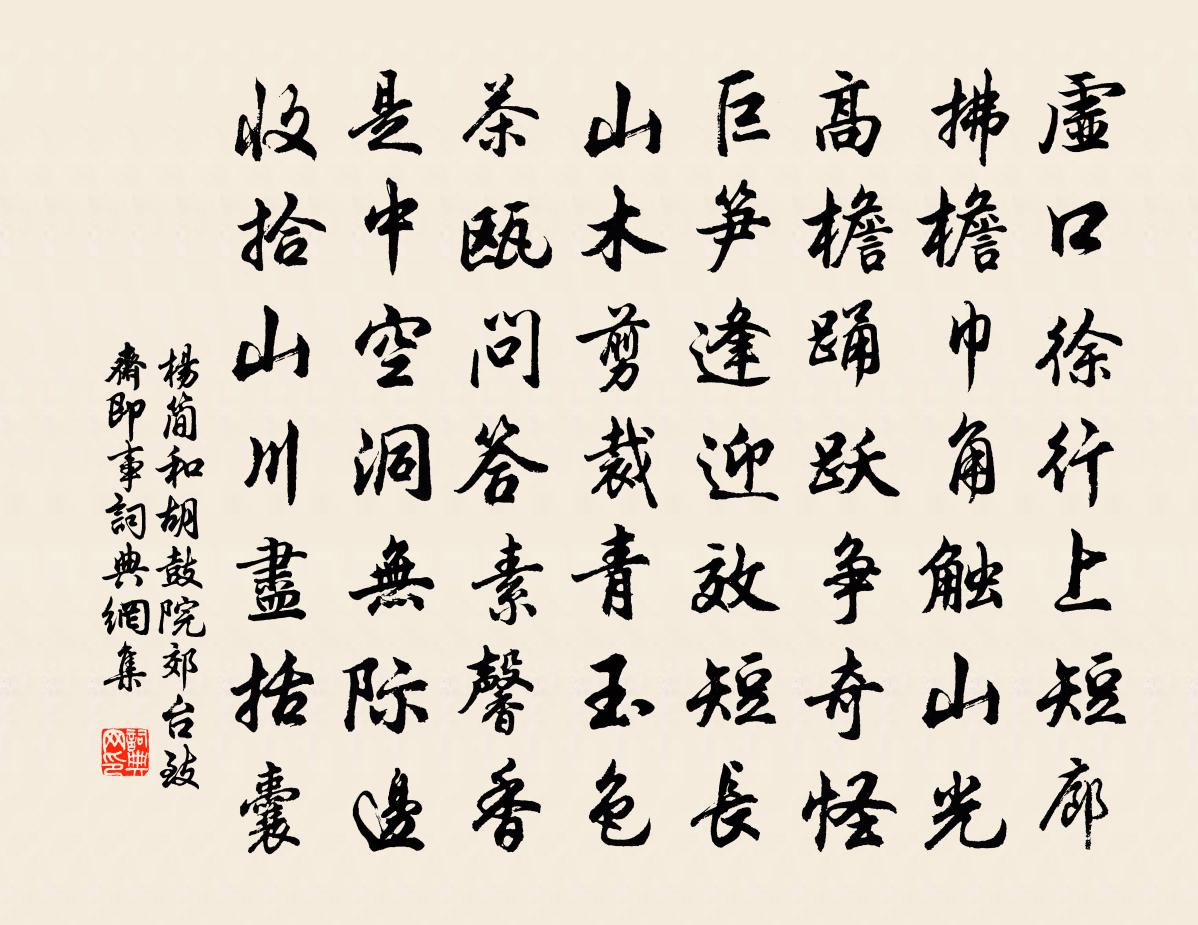 虛口徐行上短廊
拂檐巾角触山光
高檐踊跃争奇怪
巨笋逢迎效短長
山木剪裁青玉色
茶甌問答素馨香
是中空洞無际邊
收拾山川盡括囊
楊简和胡鼓院郊台致
齋即事詞典網集
詞典
网印